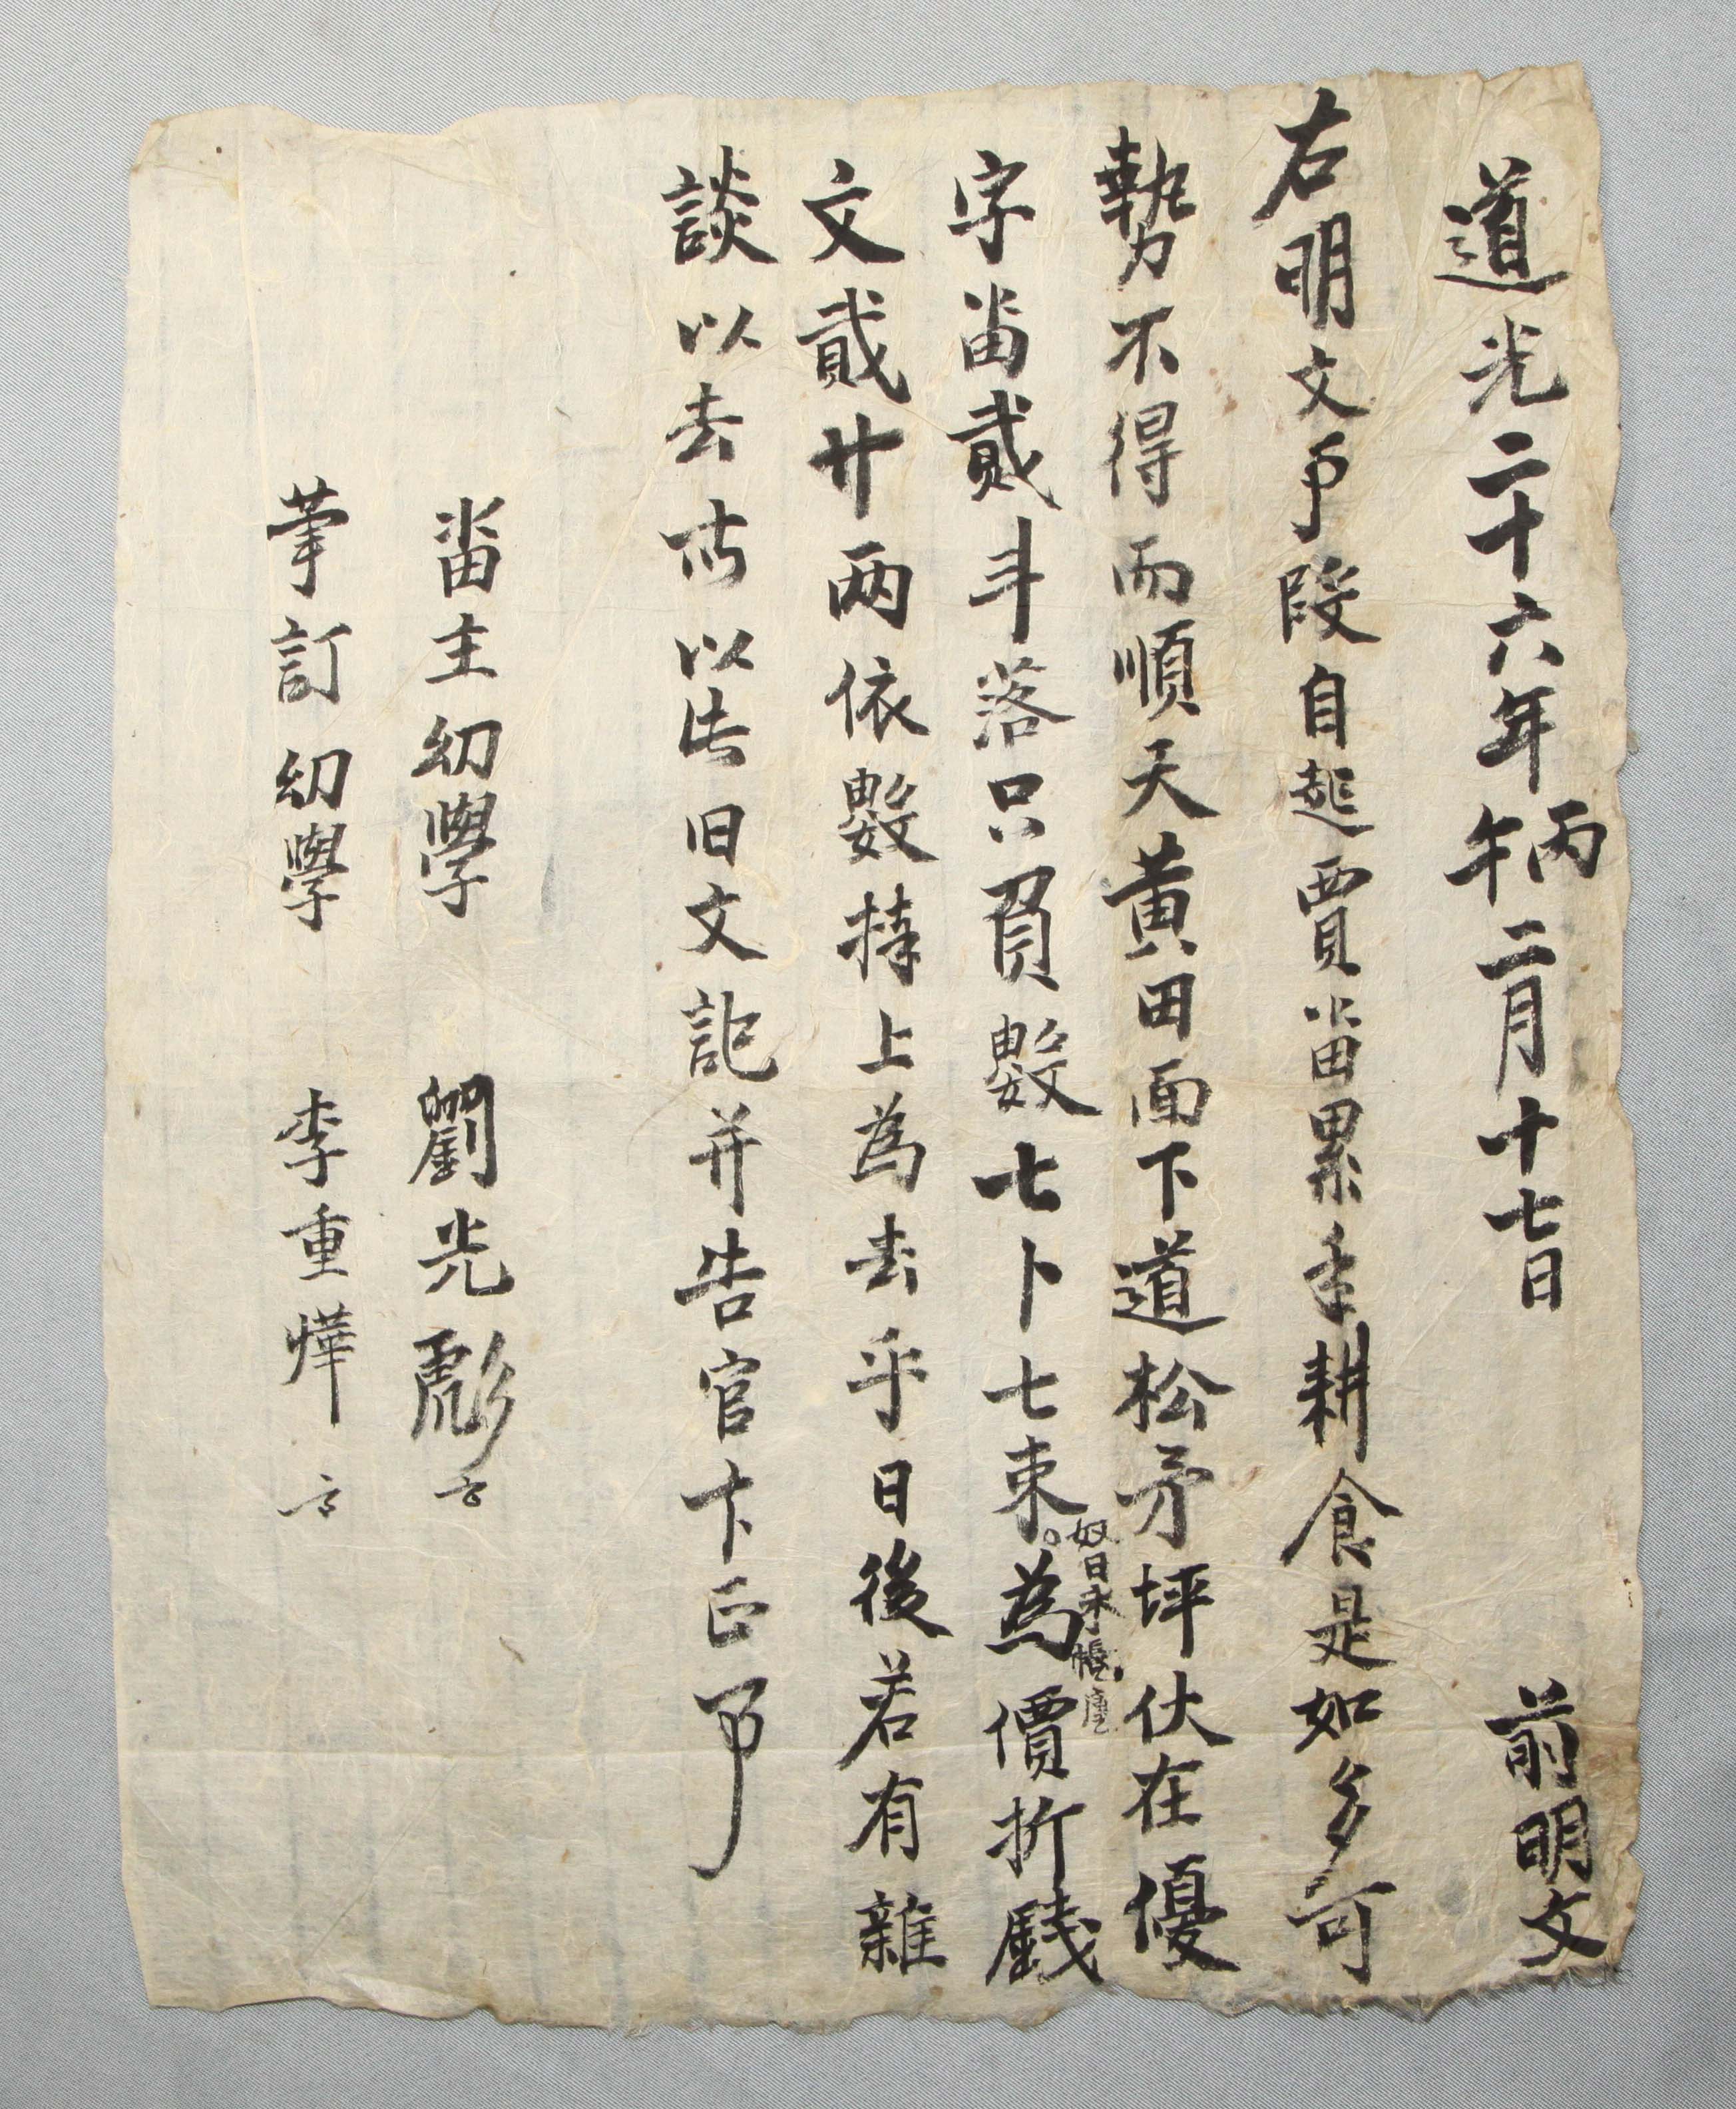 道光二十六年丙午二月十七日 前明文
右明文事段自起買畓累年耕食是如多可
勢不得而順天黃田面下道松矛坪伏在優
字畓貳斗落只負數七卜七束為價折錢
奴日永帳庫
文貳廿兩依數捧上為去乎日後若有雜
談以去等以此旧文記幷告官卞正事
畓主幼學 劉光彪
筆訂幼學 李重燁